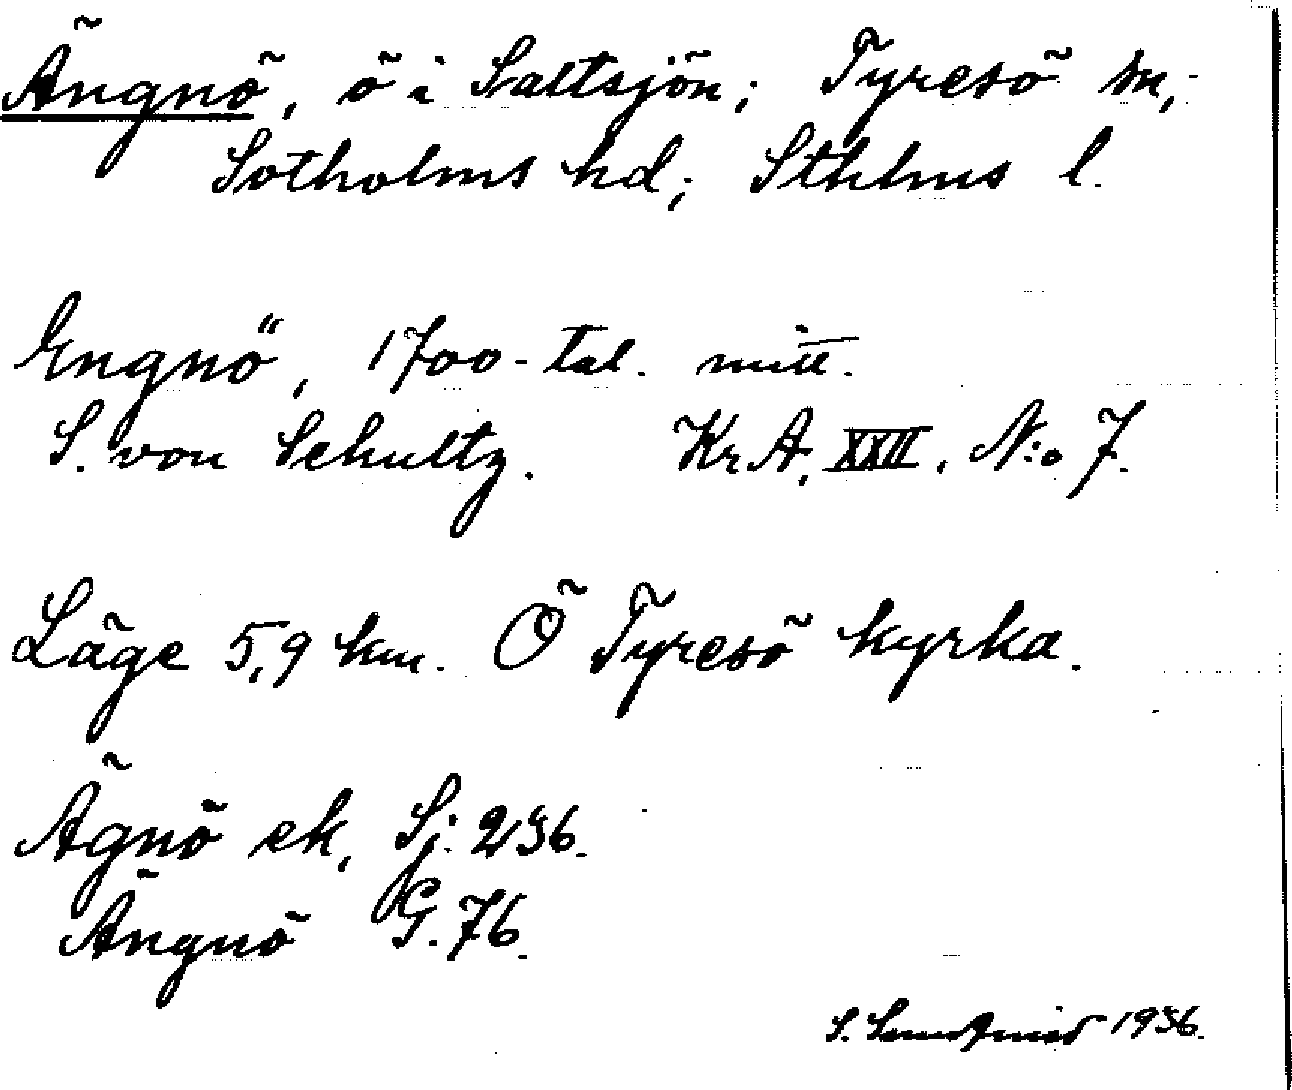 Ängnö, ö i Saltsjön; Tyresö sn,
Sotholms hd; Sthlms l.
Engnö, 1700-tal. mitt.
S. von Schultz. Kr.A. XXII. N:o 7.
Läge 5,9 km. Ö Tyresö kyrka.
Ägnö ek, Sj: 236.
Ängnö G. 76.
S. 1936.